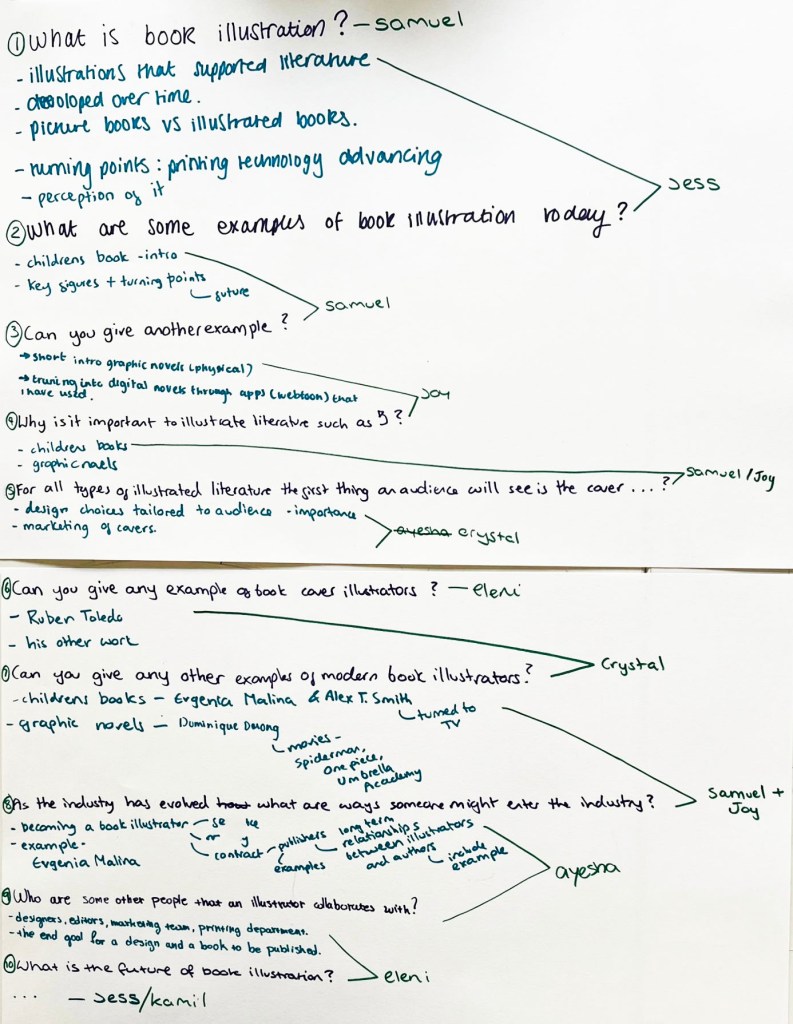 ① What is book illustration? - samuel
- illustrations that supported literature
- deveoloped over time.
- picture books vs illustrated books.
- turning points : printing technology advancing
- perception of it
Jess
② What are some examples of book illustration today?
- childrens book - intro
- key figures + turning points
future
samuel
③ Can you give another example?
→ short intro graphic novels (physical)
→ truning into digital novels through apps (webtoon) that
i have used.
Joy
④ Why is it important to illustrate literature such as ?
- childrens books
- graphic novels
Samuel / Joy
⑤ For all types of illustrated literature the first thing an audience will see is the cover ... ?
- design choices tailored to audience - importance
- marketing of covers.
ayesha crystal
⑥ Can you give any example of book cover illustrators ? - eleni
- Ruben Toledo
- his other work
Crystal
⑦ Can you give any other examples of modern book illustrators?
- childrens books - Evgenia Malina & Alex T. Smith
turned to
TV
- graphic novels - Dominique Duong
movies -
Spiderman,
one piece,
Umbrella
Academy
Samuel +
Joy
⑧ As the industry has evolved what are ways someone might enter the industry?
- becoming a book illustrator
- example -
Evgenia Malina
contract - publishers
examples
long term
relationships
between illustrators
and authors
include
example
ayesha
⑨ Who are some other people that an illustrator collaborates with?
- designers, editors, marketing team, printing department.
- the end goal for a design and a book to be published.
eleni
⑩ What is the future of book illustration?
... - Jess/kamil